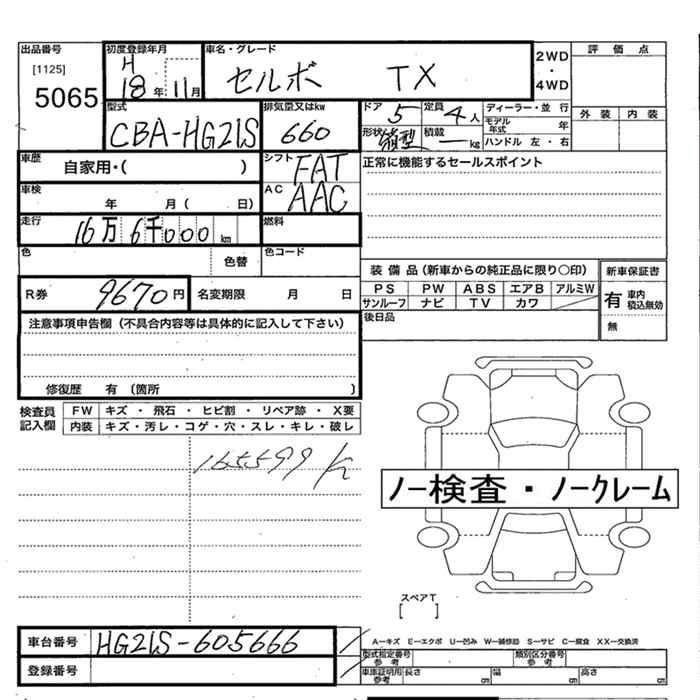 出品番号 初度登録年月 車名・グレード 2WD ・ 4WD 評価点
[1125] H
5065 18年 11月 セルボ TX
外装 内装
型式 排気量又はkw ドア 5 定員 4人 ディーラー・並行
CBA-HG21S 660 形状 箱型 積載 — kg モデル年式 年
ハンドル 左・右
車歴 自家用・( ) シフト FAT 正常に機能するセールスポイント
車検 年 月( 日) AC AAC
走行 16万6千000km 燃料
色 色替 色コード
装備品(新車からの純正品に限り○印) 新車保証書
R券 9670円 名変期限 月 日 PS PW ABS エアB アルミW 有 車内積込無効
サンルーフ ナビ TV カワ
注意事項申告欄(不具合内容等は具体的に記入して下さい) 後日品 無
修復歴 有 (箇所 )
検査員記入欄 FW キズ・飛石・ヒビ割・リペア跡・X要
内装 キズ・汚レ・コゲ・穴・スレ・キレ・破レ
165599 K
ノー検査・ノークレーム
スペアT
[ ]
車台番号 HG21S-605666 A-キズ E-エクボ U-凹み W-補修跡 S-サビ C-腐食 XX-交換済
型式指定番号 参考 類別区分番号 参考
登録番号 車庫証明用 参考 長さ cm 幅 cm 高さ cm